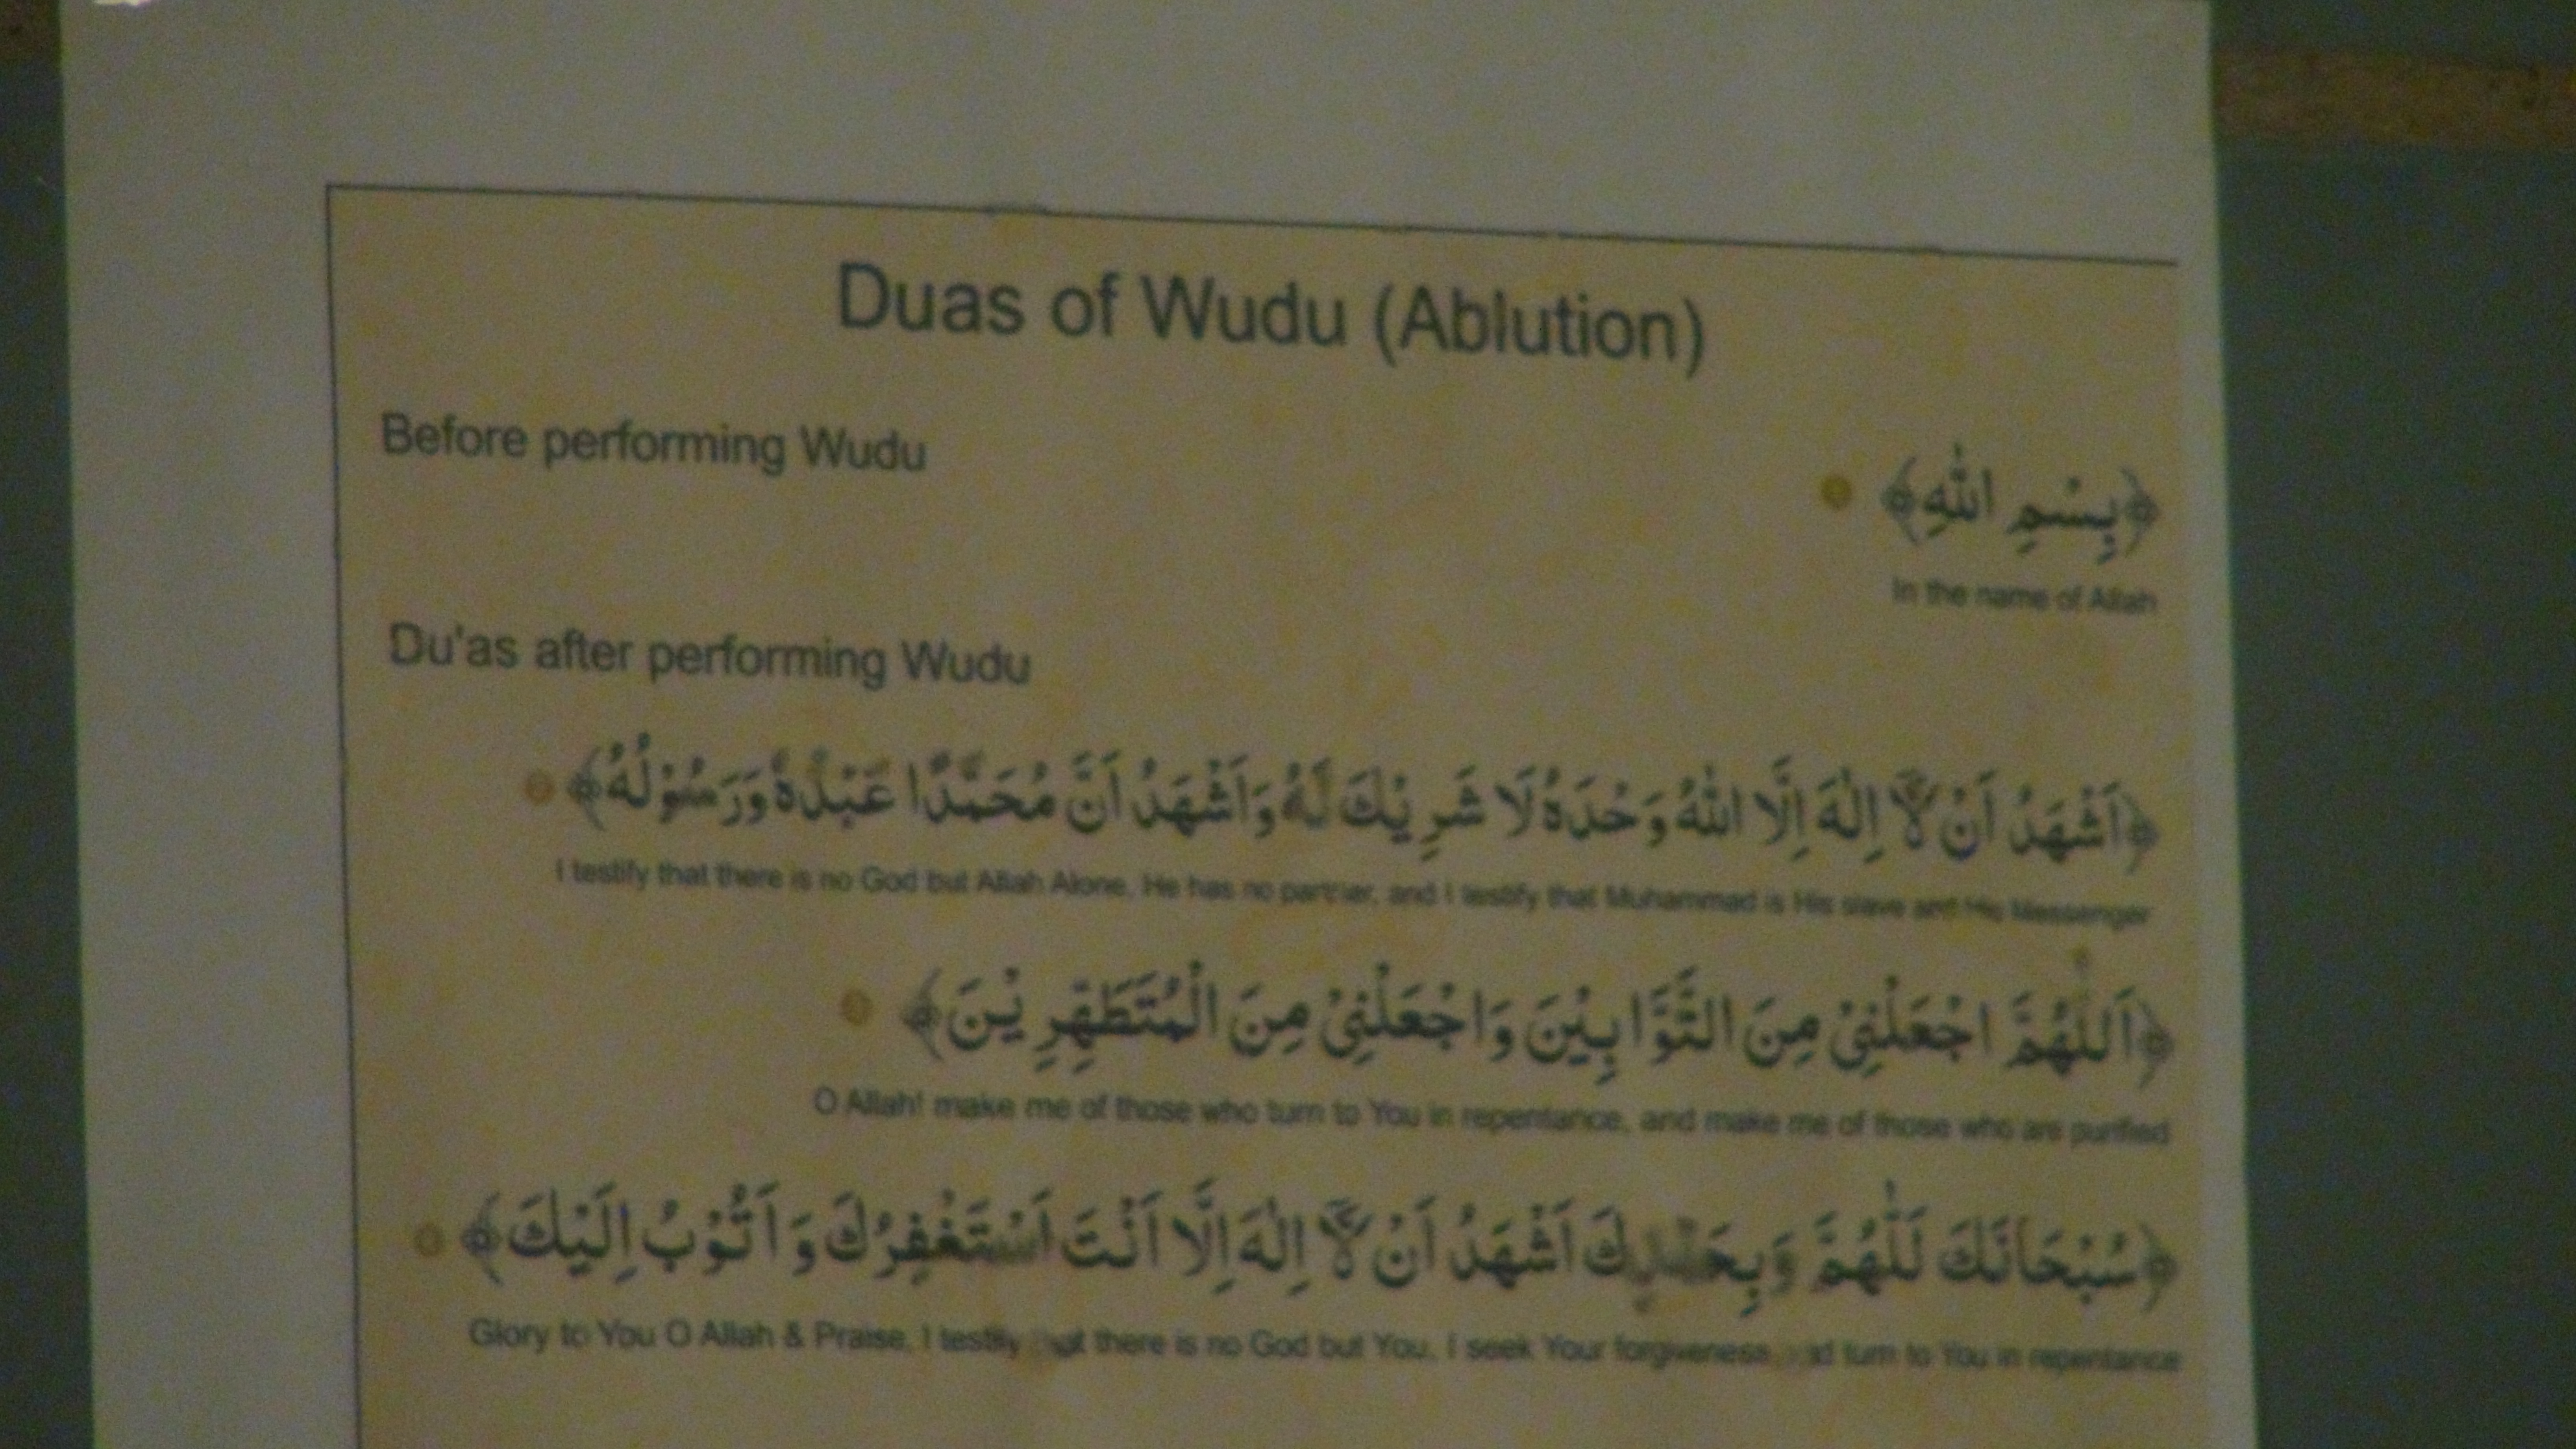 Duas of Wudu (Ablution)
Before performing Wudu
﴿بِسْمِ اللّٰهِ﴾
In the name of Allah
Du'as after performing Wudu
﴿اَشْهَدُ اَنْ لَّآ اِلٰهَ اِلَّا اللّٰهُ وَحْدَهٗ لَا شَرِيْكَ لَهٗ وَاَشْهَدُ اَنَّ مُحَمَّدًا عَبْدُهٗ وَرَسُوْلُهٗ﴾
I testify that there is no God but Allah Alone, He has no partner, and I testify that Muhammad is His slave and His Messenger
﴿اَللّٰهُمَّ اجْعَلْنِيْ مِنَ التَّوَّابِيْنَ وَاجْعَلْنِيْ مِنَ الْمُتَطَهِّرِيْنَ﴾
O Allah! make me of those who turn to You in repentance, and make me of those who are purified
﴿سُبْحَانَكَ لّٰلهُمَّ وَبِحَمْدِكَ اَشْهَدُ اَنْ لَّآ اِلٰهَ اِلَّا اَنْتَ اَسْتَغْفِرُكَ وَاَتُوْبُ اِلَيْكَ﴾
Glory to You O Allah & Praise, I testify that there is no God but You, I seek Your forgiveness and turn to You in repentance